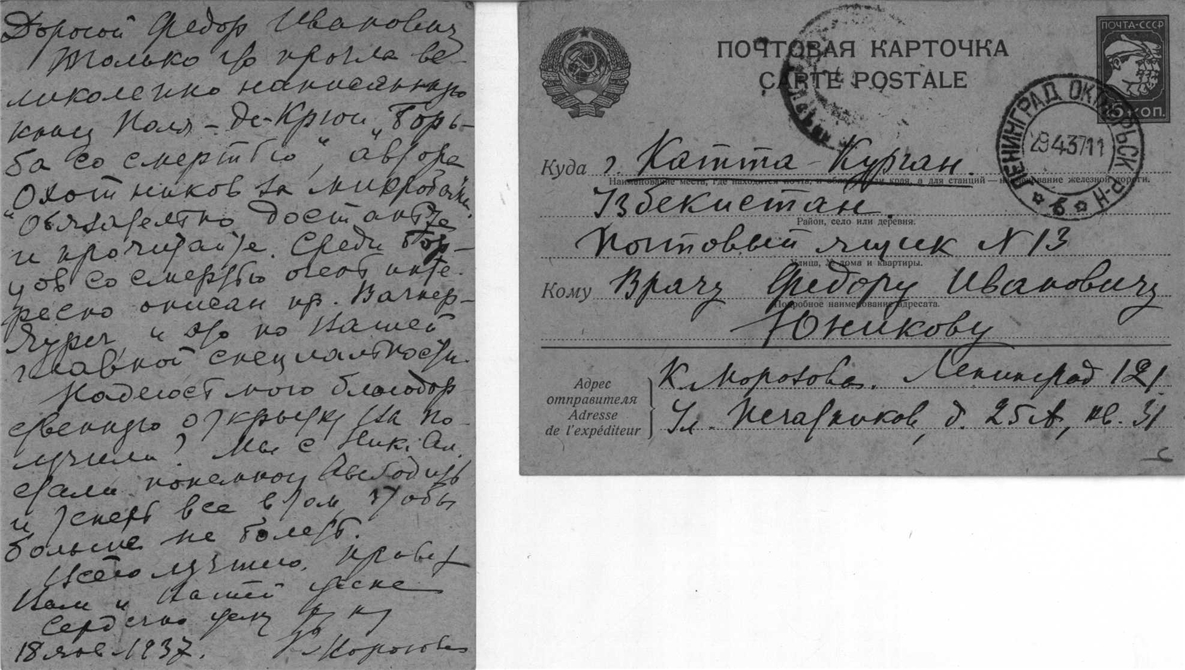 Дорогой Федор Иванович
Только что прочла ве-
ликолепно написанную
книгу Поля-де-Крюи "Борь-
ба со смертью" автора
"Охотников за микробами".
Обязательно достаньте
и прочитайте. Среди Бор-
цов со смертью очень инте-
ресно описан пр. Вагнер-
Яурег и это по Вашей
главной специальности.
мою благодар
ственную открытку Вы по-
лучили? Мы с Ник. Ал.
стали понемногу выходить
и теперь все в том, чтобы
больше не болеть.
Всего лучшего, привет
Вам и Вашей
Сердечно
18 1937. К Морозова
ПОЧТА-СССР
ПОЧТОВАЯ КАРТОЧКА
CARTE POSTALE
КОП.
ЛЕНИНГРАД ОКТЯБРЬСК. Р-Н
29 4 37 11
* 6 *
Куда г. Катта-Курган.
Наименование места, где находится почта, и области или края, а для станций — наименование железной дороги.
Узбекистан.
Район, село или деревня.
Почтовый ящик N 13
Улица, № дома и квартиры.
Кому Врачу Федору Ивановичу
Подробное наименование адресата.
Юникову
Адрес
отправителя
Adresse
de l'expéditeur
К Морозова. Ленинград 121
Ул. Печатников, д. 25А, кв. 31